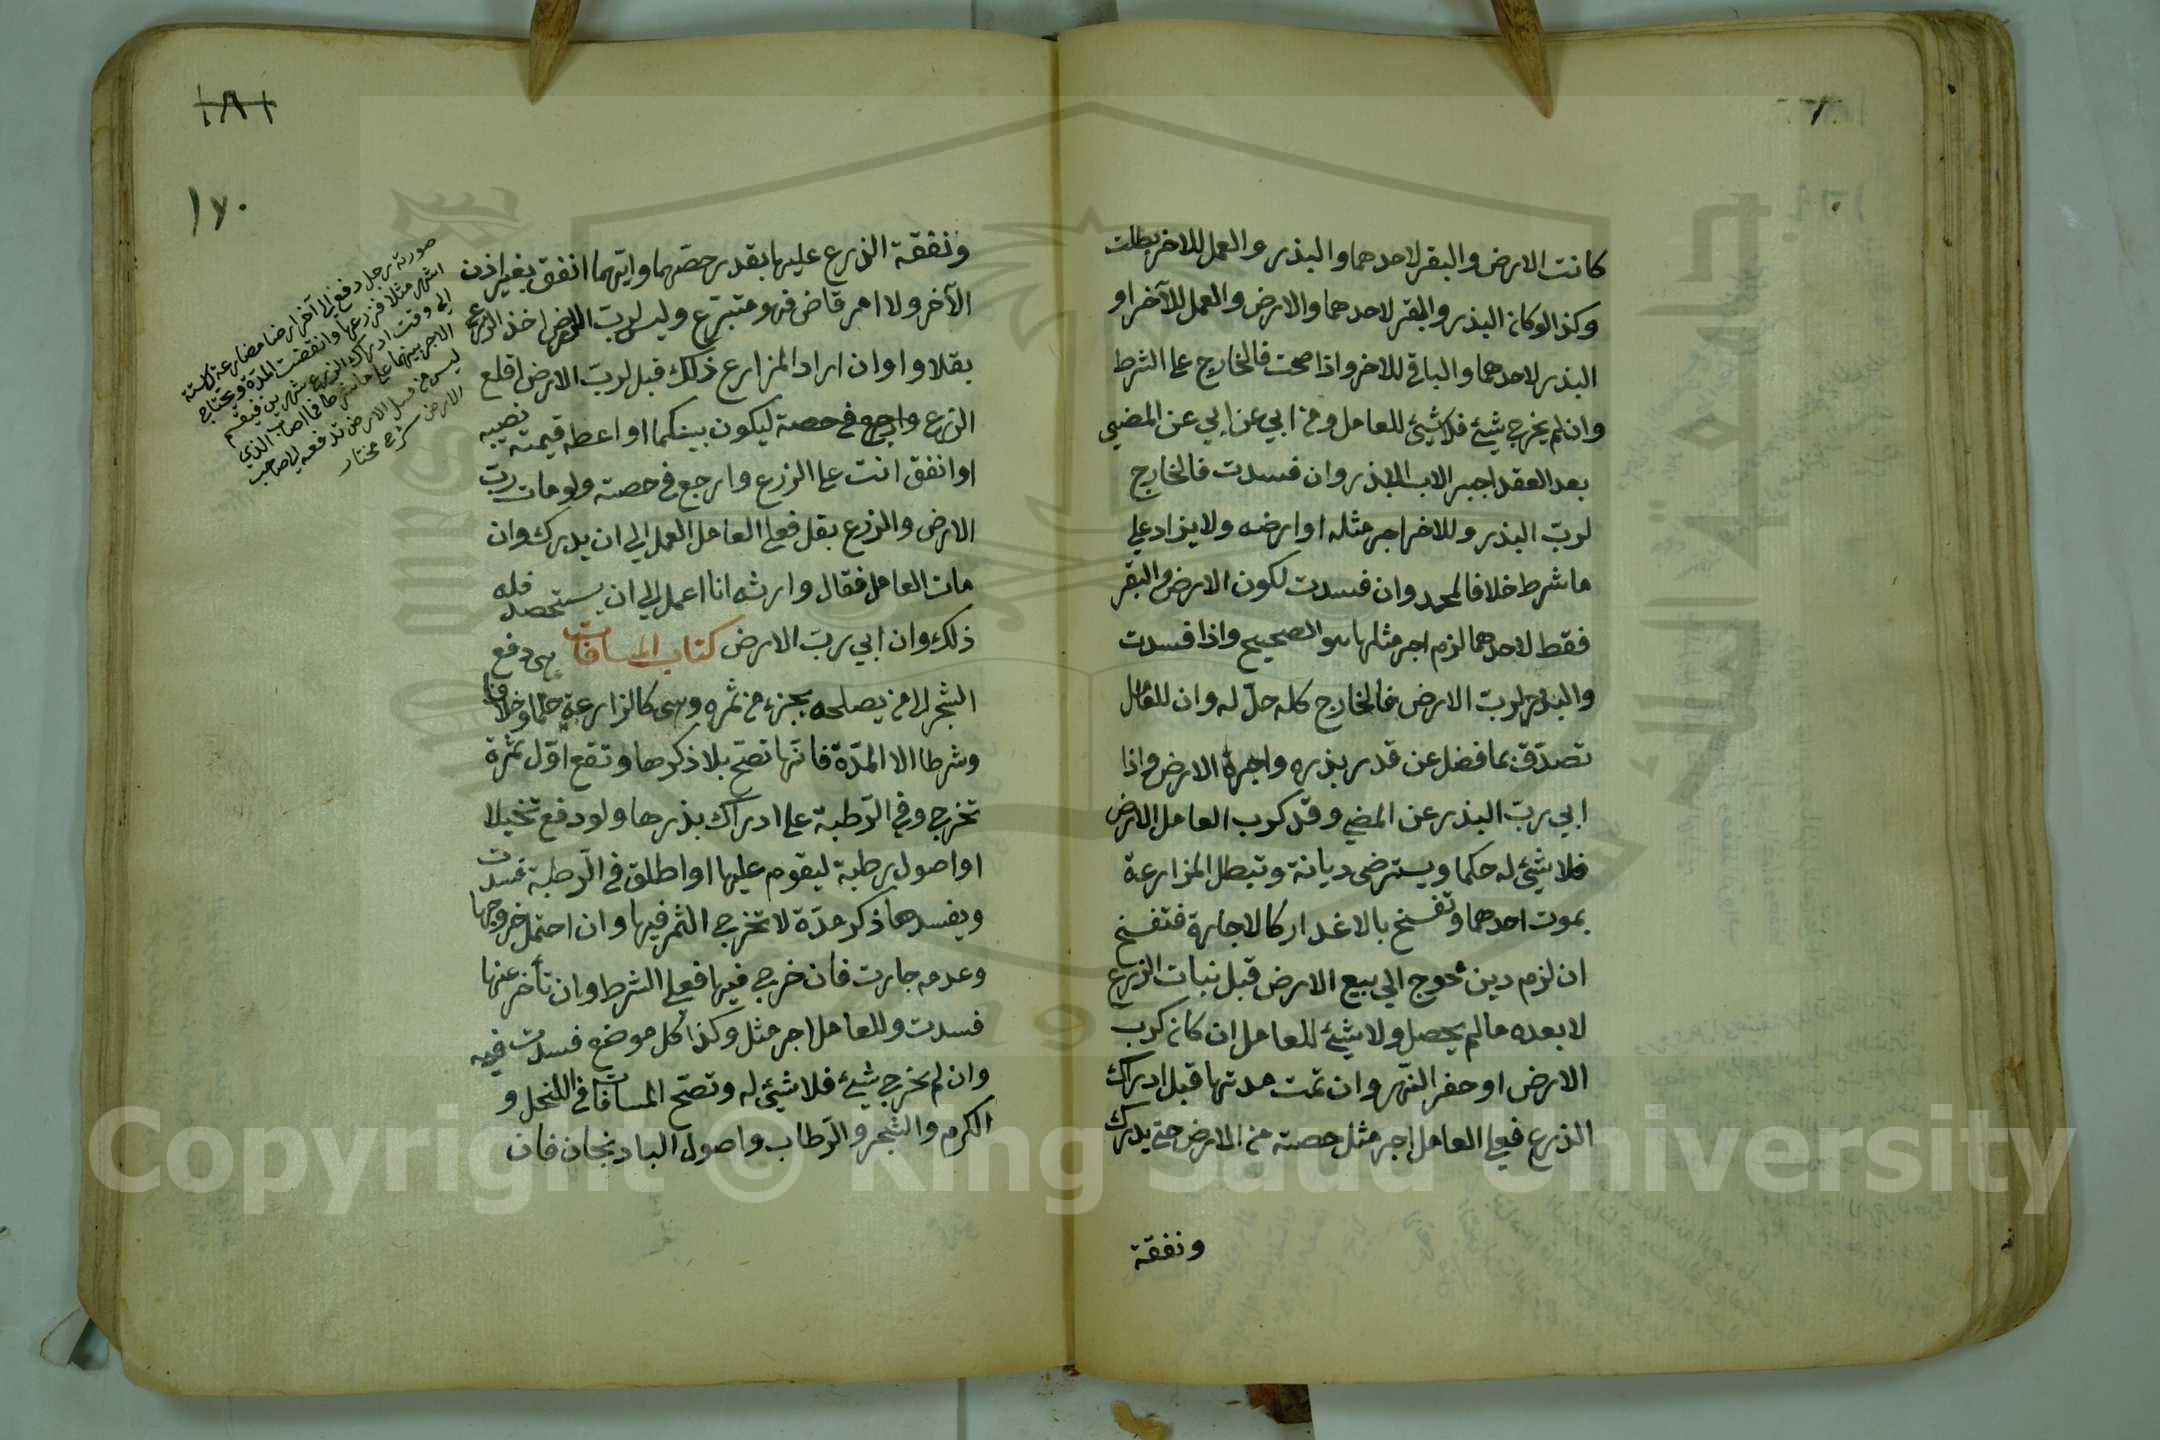 كانت الارض والبقر لاحدهما والبذر والعمل للاخر بطلت
وكذا لو كان البذر والبقر لاحدهما والارض والعمل للآخر او
البذر لاحدهما والباقي للاخر واذا صحت فالخارج على الشرط
وان لم يخرج شيئ فلا شيئ للعامل ومن ابي عن المضي
بعد العقد اجبر الا رب البذر وان فسدت فالخارج
لرب البذر وللاخر اجر مثله او ارضه ولا يزاد على
ما شرط خلافا لمحمد وان فسدت لكون الارض والبقر
فقط لاحدهما لزم اجر مثلها هو الصحيح واذا فسدت
والبذر لرب الارض فالخارج كله حلّ له وان للعامل
تصدّق بما فضل عن قدر بذره واجرة الارض واذا
ابي رب البذر عن المضي وقد كرب العامل الارض
فلا شيئ له حكما ويسترضى ديانة وتبطل المزارعة
بموت احدهما وتفسخ بالاعذار كالاجارة فتفسخ
ان لزم دين محوج الي بيع الارض قبل نبات الزرع
لا بعده ما لم يحصد ولا شيئ للعامل ان كان كرب
الارض او حفر النهر وان تمت مدتها قبل ادراك
الزرع فعلى العامل اجر مثل حصته من الارض حتى يدرك
ونفقة
١٨١
١٧٠
ونفقة الزرع عليهما بقدر حصتهما وايهما انفق بغير اذن
الآخر ولا امر قاض فهو متبرع وليس لرب الارض اخذ الزرع
بقلا واوان اراد المزارع ذلك قيل لرب الارض اقلع
الزرع وارجع في حصته ليكون بينكما او اعطه قيمة نصيبه
او انفق انت على الزرع وارجع في حصته ولو مات رب
الارض والزرع بقل فعلى العامل العمل الي ان يدرك وان
مات العامل فقال وارثه انا اعمل الي ان يستحصد فله
ذلك وان ابي رب الارض كتاب المساقات هى دفع
الشجر الى من يصلحه بجزء من ثمره وهى كالمزارعة حكما وخلافا
وشرطا الا المدّة فانّها تصح بلا ذكرها وتقع اوّل ثمرة
تخرج وفي الرّطبة على ادراك بذرها ولو دفع نخيلا
او اصول رطبة ليقوم عليها او اطلق في الرّطبة فسدت
ويفسدها ذكر مدّة لا تخرج الثمر فيها وان احتمل خروجها
وعدمه جازت فان خرج فيها فعلى الشرط وان تأخر عنها
فسدت وللعامل اجر مثل وكذا كل موضع فسدت فيه
وان لم يخرج شيئ فلا شيئ له وتصحّ المساقات في النخل و
الكرم والشجر والرّطاب واصول الباذنجان فان
صورته رجل دفع الى آخر ارضا مضارعة لستة
اشهر مثلا فزرعها وانقضت المدّة ويحتاج
الي وقت ادراك الزرع شهرين فيقسم
الاجر بينهما على ما شرطا فما اصاب الذي
ليس من قبل الارض تدفعه لصاحب
الارض شرح مختار
Copyright © King Saud University